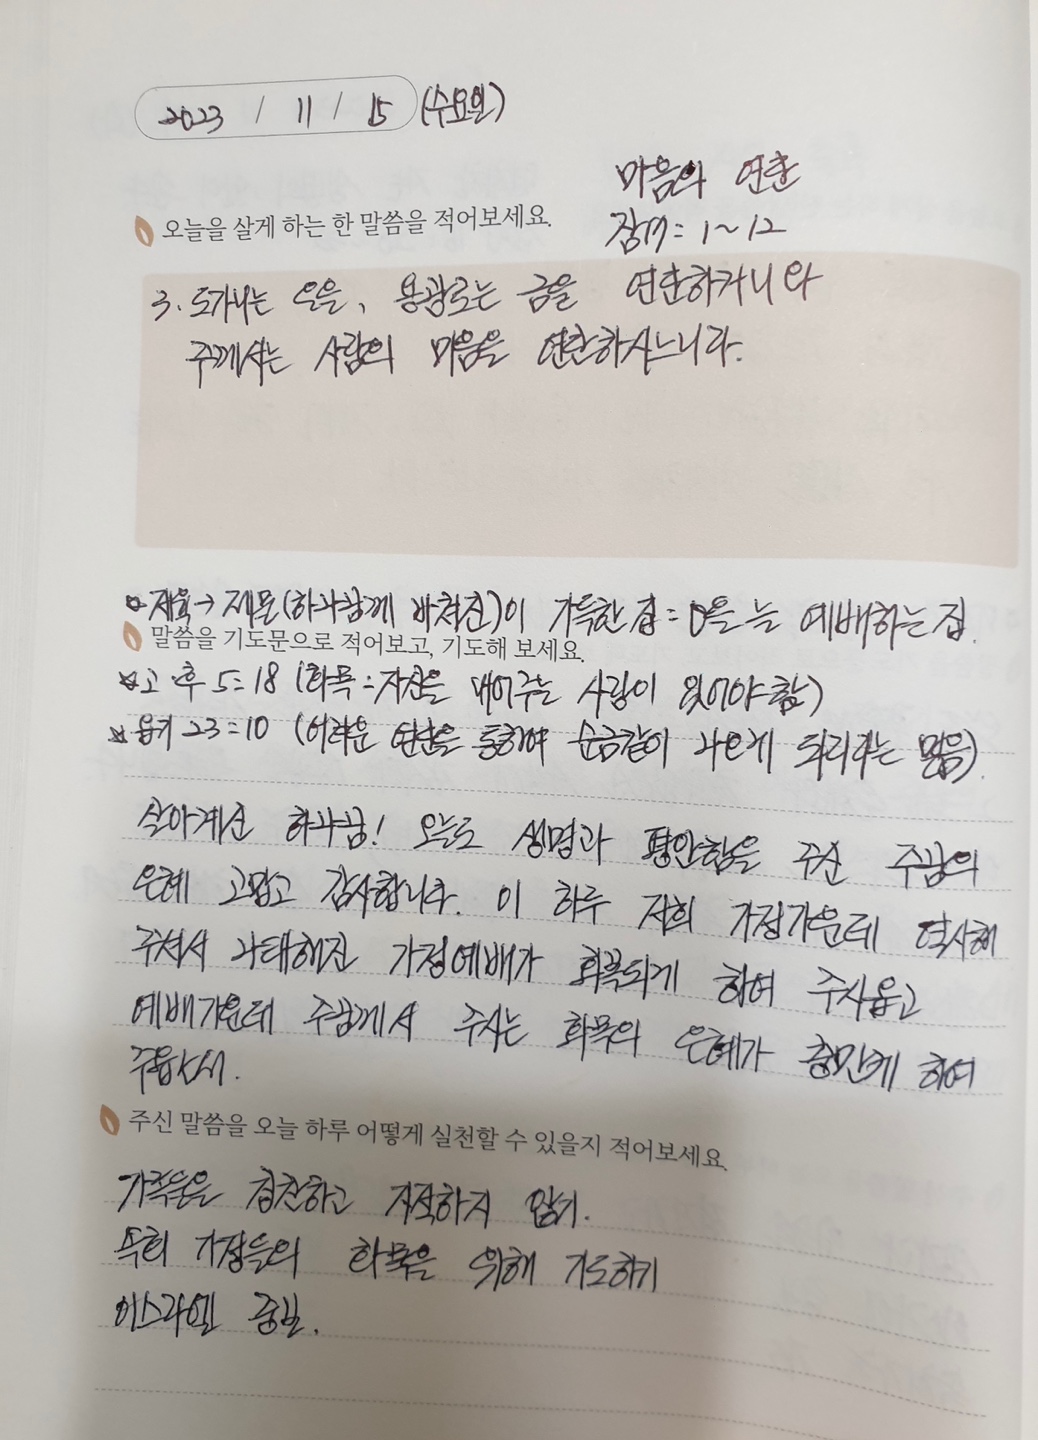 2023 / 11 / 15 (수요일)
마음의 연단
오늘을 살게 하는 한 말씀을 적어보세요.
잠17:1~12
3. 도가니는 은을, 용광로는 금을 연단하거니와
주께서는 사람의 마음을 연단하시느니라.
제육→제물(하나님께 바쳐진)이 가득한 집=는 예배하는 집.
말씀을 기도문으로 적어보고, 기도해 보세요.
고후5:18 (화목:자신을 내어주는 사람이 있어야 함)
욥기 23:10 (어려운 연단을 통하여 순금같이 나오게 되리라는 믿음).
살아계신 하나님! 오늘도 생명과 평안함을 주신 주님의
은혜 고맙고 감사합니다. 이 하루 저희 가정가운데 역사해
주셔서 나태해진 가정예배가 회복되게 하여 주시옵고
예배가운데 주님께서 주시는 화목의 은혜가 충만케 하여
주옵시서.
주신 말씀을 오늘 하루 어떻게 실천할 수 있을지 적어보세요.
가족들을 칭찬하고 지적하지 않기.
특히 가정들의 화목을 위해 기도하기
이스라엘 중보.